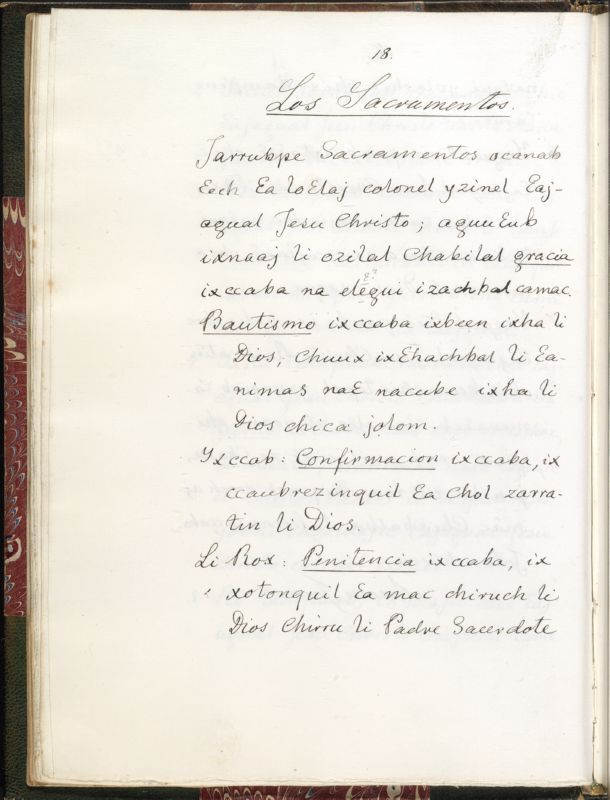 18.
Los Sacramentos.
Jarrubpe Sacramentos ocanab
Eech Ea loElaj colonel yzinel Eaj-
agual Jesu Christo; aguuEub
ixnaaj li ozilal Chabilal gracia
ixccaba na elegui izachbal camac.
Bautismo ixccaba ixbeen ixha li
Dios, Chuux ixEhachbal li Ea-
nimas naE nacube ixha li
Dios chica jolom.
Yxccab: Confirmacion ixccaba, ix
ccaubrezinquil Ea Chol zarra-
tin li Dios.
Li Rox: Penitencia ixccaba, ix
xotonquil Ea mac chiruch li
Dios Chirru li Padre Sacerdote